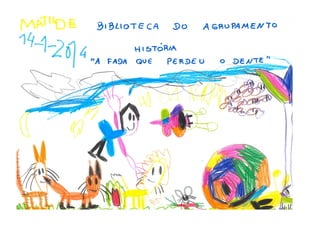 MATILDE
BIBLIOTECA DO AGRUPAMENTO
14-1-2014
HISTÓRIA
"A FADA QUE PERDEU O DENTE"